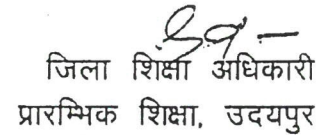 जिला शिक्षा अधिकारी
प्रारम्भिक शिक्षा, उदयपुर